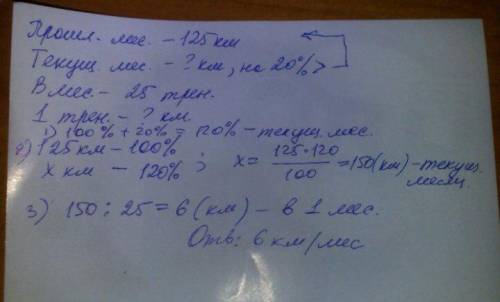 Прошл. мес. – 125 км
Текущ. мес. – ? км, на 20% >
В мес. – 25 трен.
1 трен. – ? км
1) 100% + 20% = 120% – текущ. мес.
2) 125 км – 100% ; x = 125·120 / 100 = 150 (км) – текущ. месяц
x км – 120%
3) 150 : 25 = 6 (км) – в 1 мес.
Отв: 6 км/мес